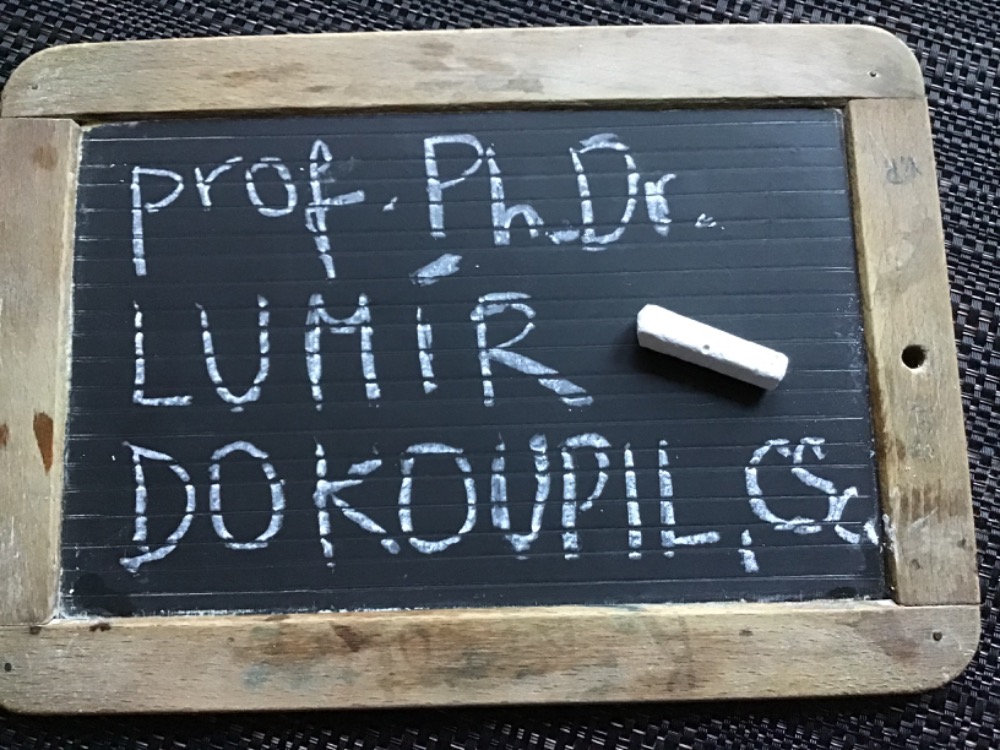 prof. Ph.Dr.
LUMÍR
DOKOUPIL, CSc